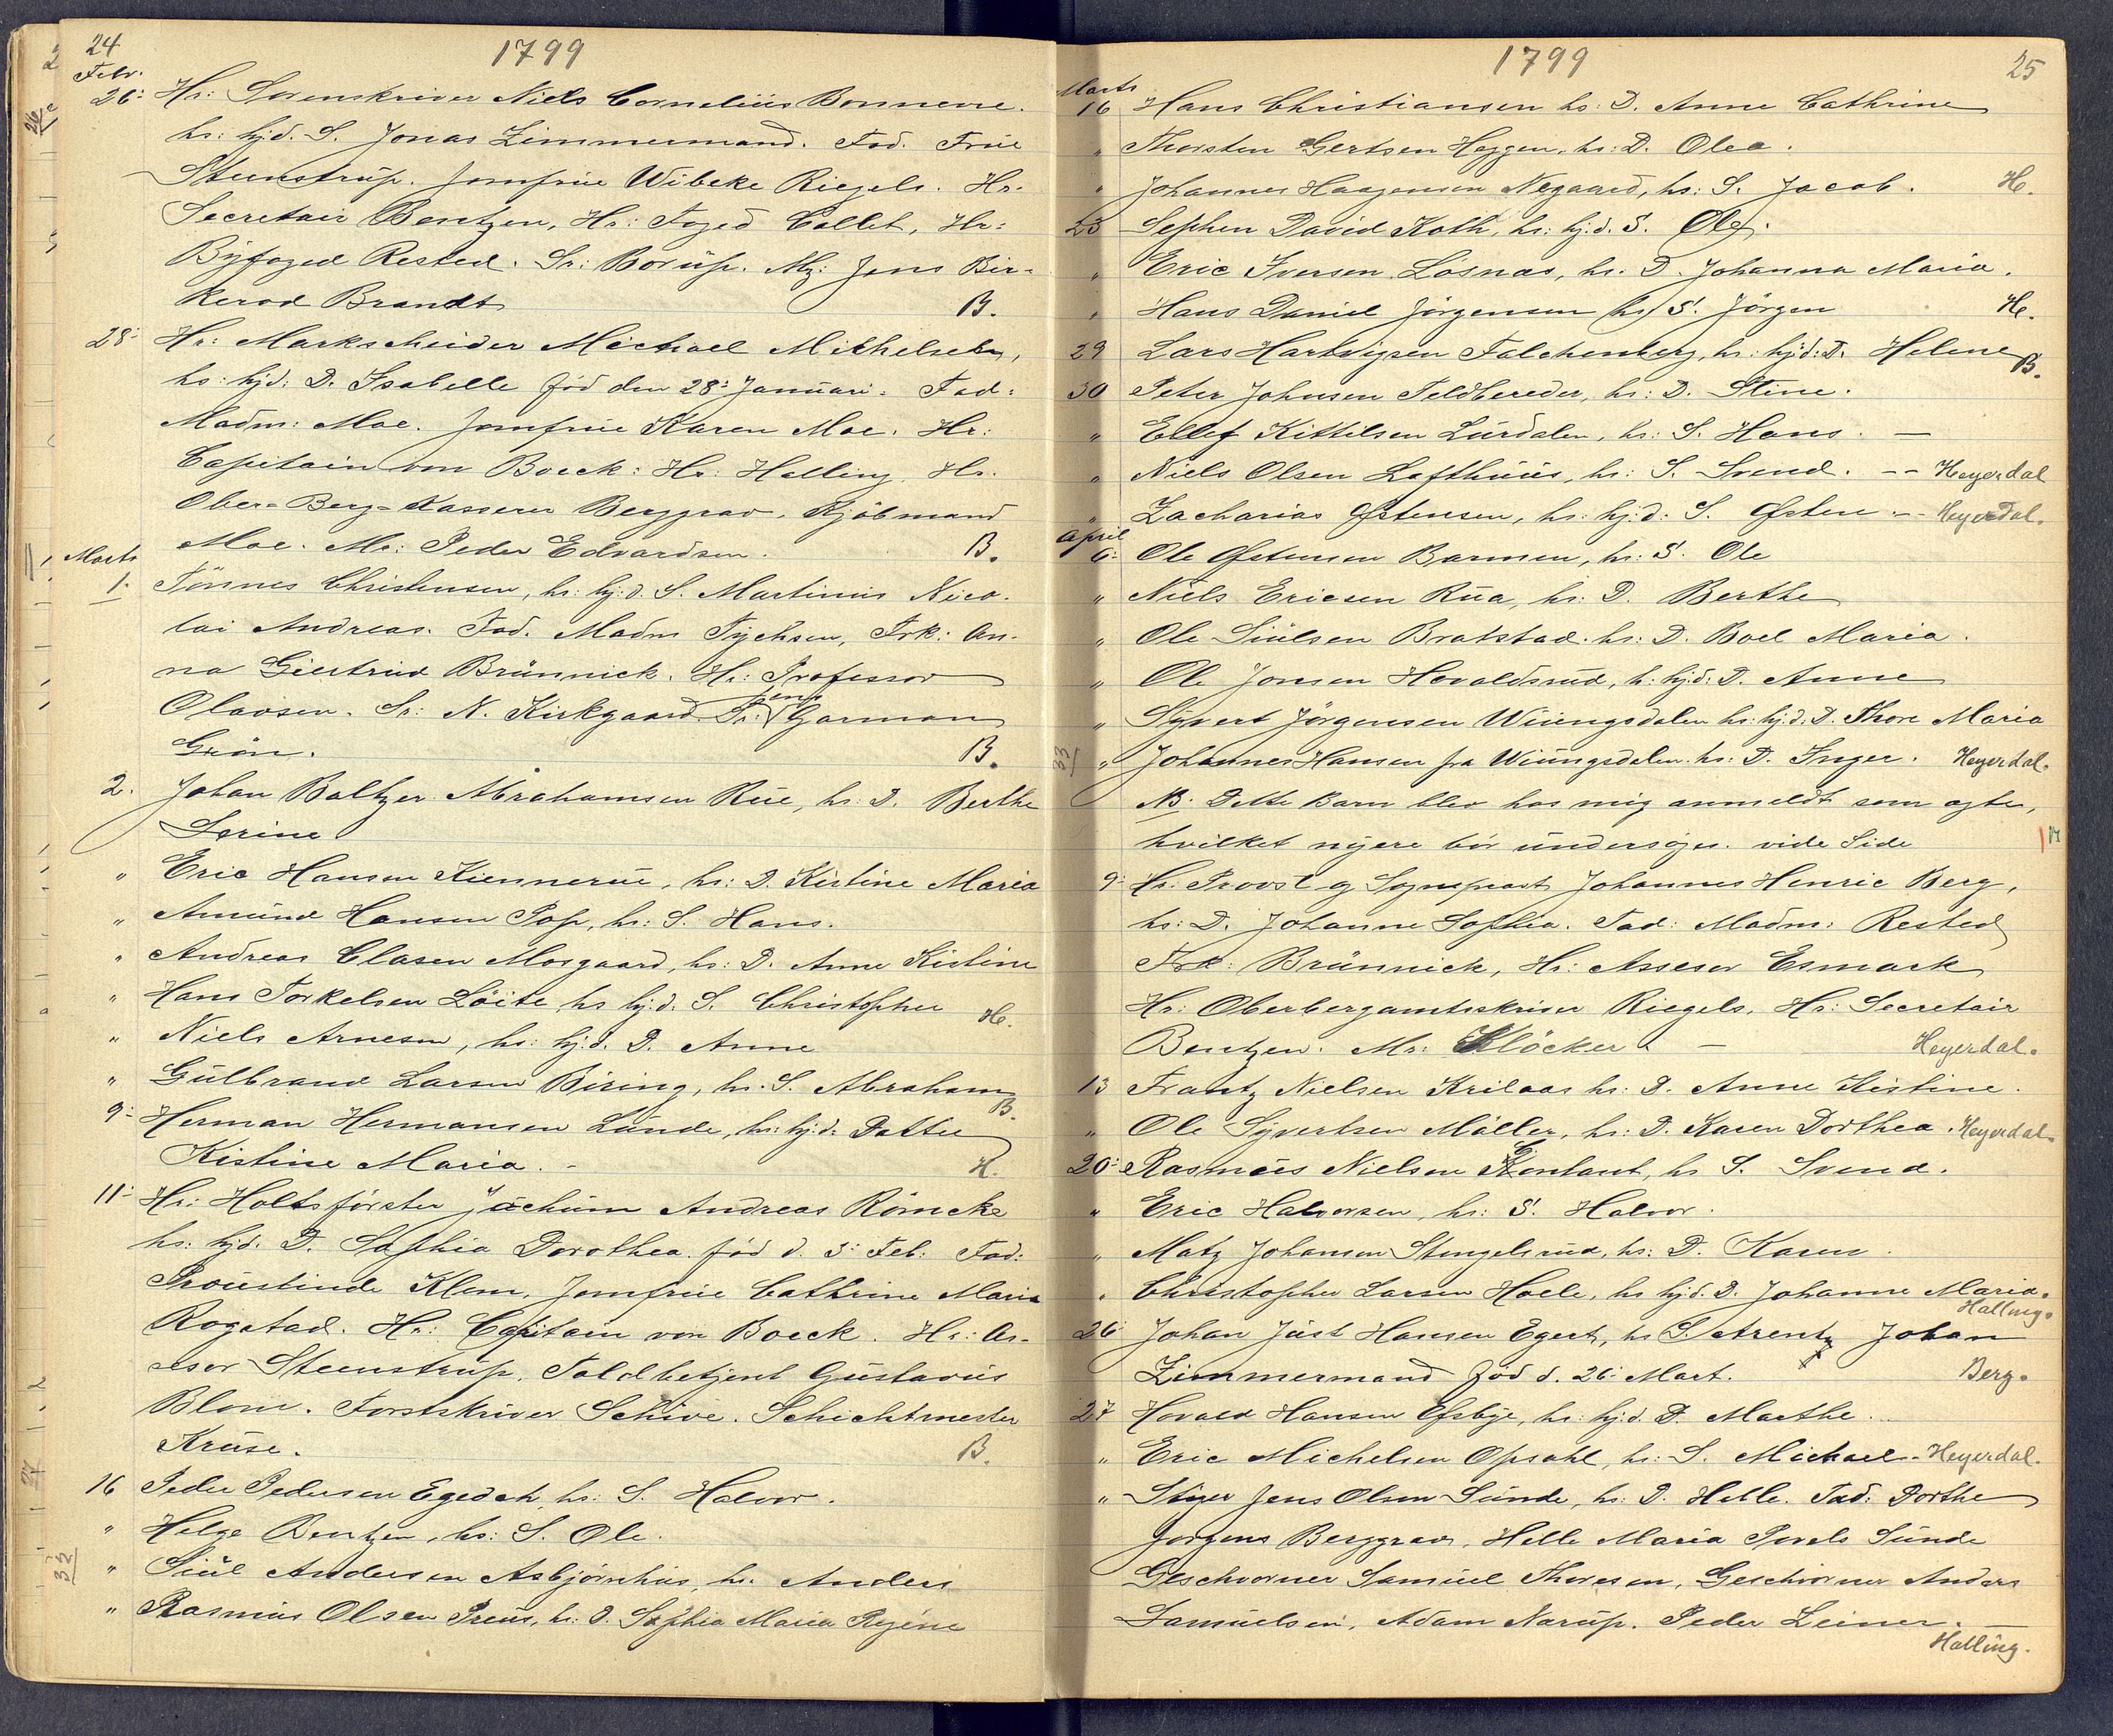 24
1799
Febr.
26: Hr: Sorenskriver Niels Cornelius Bonnevie.
hs: hjd. S. Jonas Zimmermand. Fad. Frue
Steenstrup. Jomfrue Wibeke Riegels. Hr.
Secretair Bentzen, Hr: Foged Collet, Hr:
Byfoged Rested. Sr: Borup. Mz: Jens Bir-
kerod Brandt B.
28: Hr: Markscheider Michael Mikkelsen,
hs: hjd: D. Isabelle fød den 28: Januari. Fad:
Madm: Moe. Jomfrue Karen Moe. Hr:
Capitain von Boeck: Hr: Halling. Hr.
Ober-Berg-Kasserer Berggrav. Kjöbmand
Moe. Mr: Peder Edvardsen. B.
Marts
1. Tönnes Christensen, hs: hj.d. S. Martinus Nico-
lai Andreas. Fad. Madm Tychsen, Frk: An-
na Giertrud Brünnick. Hr: Professor
Olavsen. Sr: N. Kirkgaard Sr: Jens Garman
Grön. B.
2. Johan Baltzer Abrahamsen Rue, hs: D. Berthe
Serine
" Eric Hansen Kiennerue, hs: D. Kistine Maria
" Amund Hansen Pop, hs: S. Hans.
" Andreas Clasen Mosgaard, hs: D. Anne Kistine
" Hans Torkelsen Löite, hs hj.d. S. Christopher H.
" Niels Arnesen, hs: hj.d. D. Anne
" Gulbrand Larsen Biring, hs. S. Abraham B.
9: Herman Hermansen Lunde, hs: hj:d: Datter
Kistine Maria. - H.
11: Hr: Holtsförster Jachum Andreas Römcke
hs: hjd. D. Sophia Dorothea. fød d. 3: Feb: Fad:
Proustinde Klem, Jomfrue Cathrine Maria
Rogstad. Hr: Capitain von Boeck. Hr: As-
sesor Steenstrup. Toldbetjent Gustavus
Blom. Forstskriver Schive. Schichtmester
Kruse. B.
16 Peder Pedersen Egedah, hs: S. Halvor.
" Helge Bentzen, hs: S. Ole.
" Siul Andersen Asbjörnhus, hs. Anders
" Rasmus Olsen Preus, hs: D. Sophia Maria Regine
1799
25
Marts
16 Hans Christiansen hs: D. Anne Cathrine
" Thorsten Gertsen Heggen, hs: D. Olea.
" Johannes Haagensen Negaard, hs: S. Jacob. H.
23 Sephen David Koth, hs: hj.d. S. Ole.
" Eric Iversen Lösnas, hs. D. Johanna Maria.
" Hans Daniel Jörgensen hs S. Jörgen H.
29 Lars Hartvigsen Falchenberg, hs: hjd: D. Helene B.
30 Peter Johnsen Feldbereder, hs: D. Stine.
" Ellef Kittilsen Lurdalen, hs: S. Hans. -
" Niels Olsen Lofthuus, hs: S. Svend. -- Heyerdal
" Zacharias Østensen, hs: hj:d: S. Østen -- Heyerdal.
April
6: Ole Østensen Barmen, hs: S. Ole
" Niels Ericsen Rua, hs: D. Berthe
" Ole Siulsen Bratstad. hs: D. Boel Maria.
" Ole Jonsen Hovaldsrud, h: hj.d: D. Anne
" Syvert Jörgensen Wiungsdalen hs: hj:d: D. Thore Maria
" Johannes Hansen fra Wiungsdalen hs: D. Inger. Heyerdal.
NB. Dette Barn blev hos mig anmeldt som ægte,
hvilket nöjere bör undersøges. vide Side
9: Hr: Provst og Sognepræst Johannes Henric Berg,
hs: D. Johanne Sophia. Fad: Madm: Rested
Frk: Brünnick, Hr: Assesor Esmark
Hr: Oberbergamtsskriver Riegels, Hr: Secretair
Bentzen. Mr: Klöcker. - Heyerdal.
13 Frantz Nielsen Krilaas hs: D. Anne Kistine.
" Ole Syvertsen Möller, hs: D. Karen Dorthea. Heyerdal.
20: Rasmus Nielsen, hs S. Svend.
" Eric Halvorsen, hs: S. Halvor.
" Matz Johansen Stengelsrud, hs: D. Karen.
" Christopher Larsen Hoele, hs hj.d. D. Johanne Maria.
Halling.
26 Johan Just Hansen Egert, hs S. Arentz Johan
Zimmermand fød d. 26: Mart. Berg.
27 Hovald Hansen Efsbye, hs: hj:d. D. Marthe.
" Eric Michelsen Opsahl, hs: S. Michael. Heyerdal.
" Stiger Jens Olsen Sunde, hs: D. Helle. Fad: Dorthe
Jorgens Berggrav, Helle Maria Povels Sunde
Geschvorner Samuel Thoresen, Geschvorner Anders
Samuelsen, Adam Narup. Peder Leiner.
Halling.